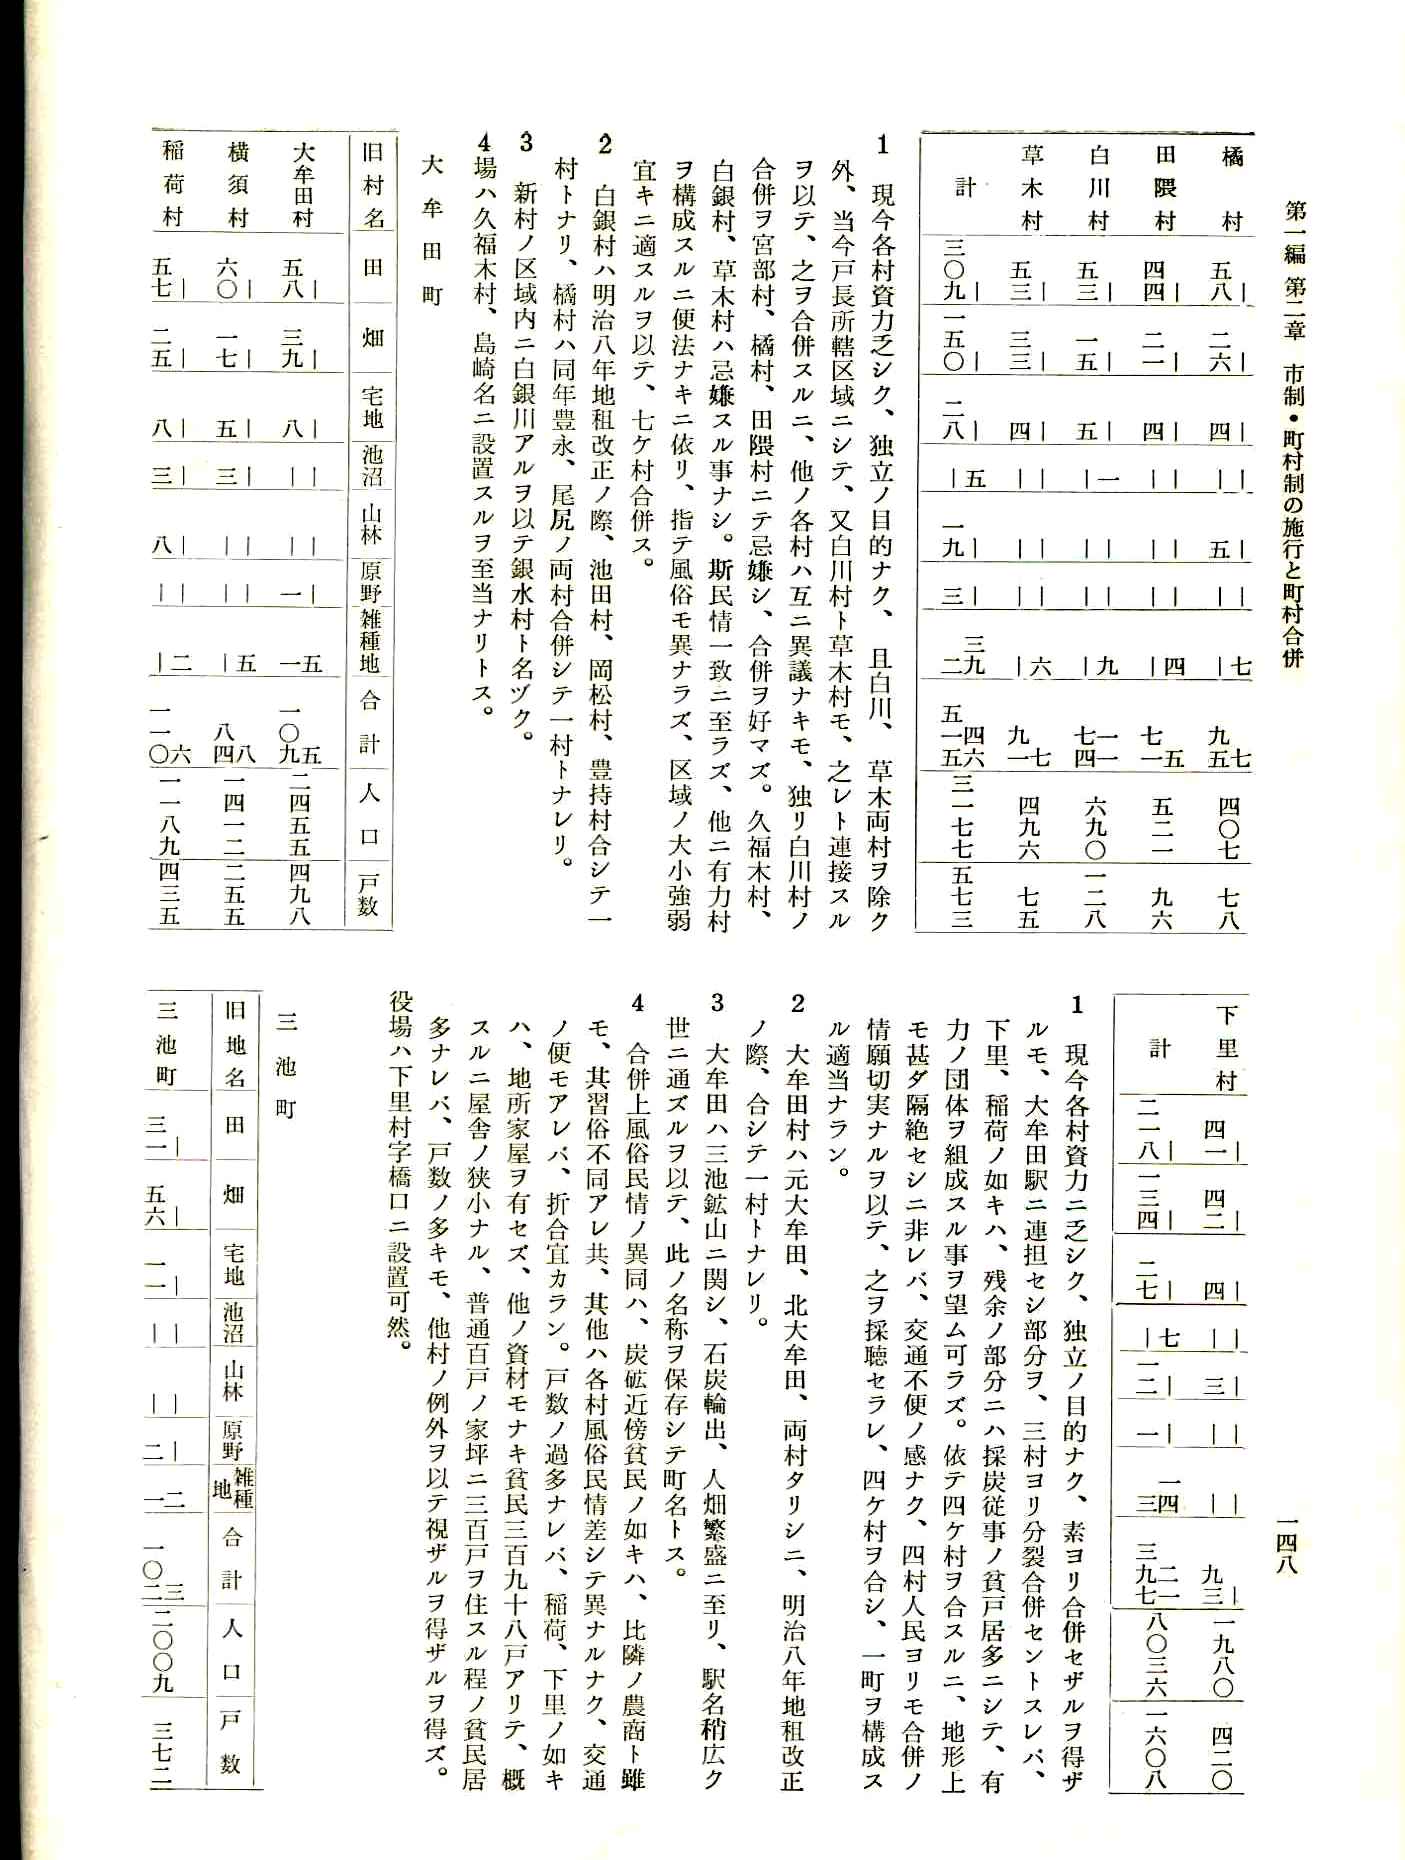 第一編 第二章　市制・町村制の施行と町村合併
一四八
橘村 五八｜ 二六｜ 四｜ ｜｜ 五｜ ｜｜ ｜七 九五七 四〇七 七八
田隈村 四四｜ 二一｜ 四｜ ｜｜ ｜｜ ｜｜ ｜四 七一五 五二一 九六
白川村 五三｜ 一五｜ 五｜ ｜一 ｜｜ ｜｜ ｜九 七四一一 六九〇 一二八
草木村 五三｜ 三三｜ 四｜ ｜｜ ｜｜ ｜｜ ｜六 九一七 四九六 七五
計 三〇九｜ 一五〇｜ 二八｜ ｜五 一九｜ 三｜ 三二九 五一五四六 三一七七 五七三
1　現今各村資力乏シク、独立ノ目的ナク、且白川、草木両村ヲ除ク
外、当今戸長所轄区域ニシテ、又白川村ト草木村モ、之レト連接スル
ヲ以テ、之ヲ合併スルニ、他ノ各村ハ互ニ異議ナキモ、独リ白川村ノ
合併ヲ宮部村、橘村、田隈村ニテ忌嫌シ、合併ヲ好マズ。久福木村、
白銀村、草木村ハ忌嫌スル事ナシ。斯民情一致ニ至ラズ、他ニ有力村
ヲ構成スルニ便法ナキニ依リ、指テ風俗モ異ナラズ、区域ノ大小強弱
宜キニ適スルヲ以テ、七ケ村合併ス。
2　白銀村ハ明治八年地租改正ノ際、池田村、岡松村、豊持村合シテ一
村トナリ、橘村ハ同年豊永、尾尻ノ両村合併シテ一村トナレリ。
3　新村ノ区域内ニ白銀川アルヲ以テ銀水村ト名ヅク。
4場ハ久福木村、島崎名ニ設置スルヲ至当ナリトス。
大牟田町
旧村名 田 畑 宅地 池沼 山林 原野 雑種地 合計 人口 戸数
大牟田村 五八｜ 三九｜ 八｜ ｜｜ ｜｜ 一｜ 一五 一〇九五 二四五五 四九八
横須村 六〇｜ 一七｜ 五｜ 三｜ ｜｜ ｜｜ ｜五 八四八 一四一二 二五五
稲荷村 五七｜ 二五｜ 八｜ 三｜ 八｜ ｜｜ ｜二 一一〇六 一一八九 四三五
下里村 四一｜ 四二｜ 四｜ ｜｜ 三｜ ｜｜ ｜｜ 九三｜ 一九八〇 四二〇
計 二一八｜ 一三四｜ 二七｜ ｜七 一二｜ 一｜ 一三四 三九七二一 八〇三六 一六〇八
1　現今各村資力ニ乏シク、独立ノ目的ナク、素ヨリ合併セザルヲ得ザ
ルモ、大牟田駅ニ連担セシ部分ヲ、三村ヨリ分裂合併セントスレバ、
下里、稲荷ノ如キハ、残余ノ部分ニハ採炭従事ノ貧戸居多ニシテ、有
力ノ団体ヲ組成スル事ヲ望ム可ラズ。依テ四ケ村ヲ合スルニ、地形上
モ甚ダ隔絶セシニ非レバ、交通不便ノ感ナク、四村人民ヨリモ合併ノ
情願切実ナルヲ以テ、之ヲ採聴セラレ、四ケ村ヲ合シ、一町ヲ構成ス
ル適当ナラン。
2　大牟田村ハ元大牟田、北大牟田、両村タリシニ、明治八年地租改正
ノ際、合シテ一村トナレリ。
3　大牟田ハ三池鉱山ニ関シ、石炭輪出、人畑繁盛ニ至リ、駅名稍広ク
世ニ通ズルヲ以テ、此ノ名称ヲ保存シテ町名トス。
4　合併上風俗民情ノ異同ハ、炭砿近傍貧民ノ如キハ、比隣ノ農商ト雖
モ、其習俗不同アレ共、其他ハ各村風俗民情差シテ異ナルナク、交通
ノ便モアレバ、折合宜カラン。戸数ノ過多ナレバ、稲荷、下里ノ如キ
ハ、地所家屋ヲ有セズ、他ノ資材モナキ貧民三百九十八戸アリテ、概
スルニ屋舎ノ狭小ナル、普通百戸ノ家坪ニ三百戸ヲ住スル程ノ貧民居
多ナレバ、戸数ノ多キモ、他村ノ例外ヲ以テ視ザルヲ得ザルヲ得ズ。
役場ハ下里村字橋口ニ設置可然。
三池町
旧地名 田 畑 宅地 池沼 山林 原野 雑種地 合計 人口 戸数
三池町 三一｜ 五六｜ 一一｜ ｜｜ ｜｜ 二｜ 一二 一〇二三 二〇〇九 三七二